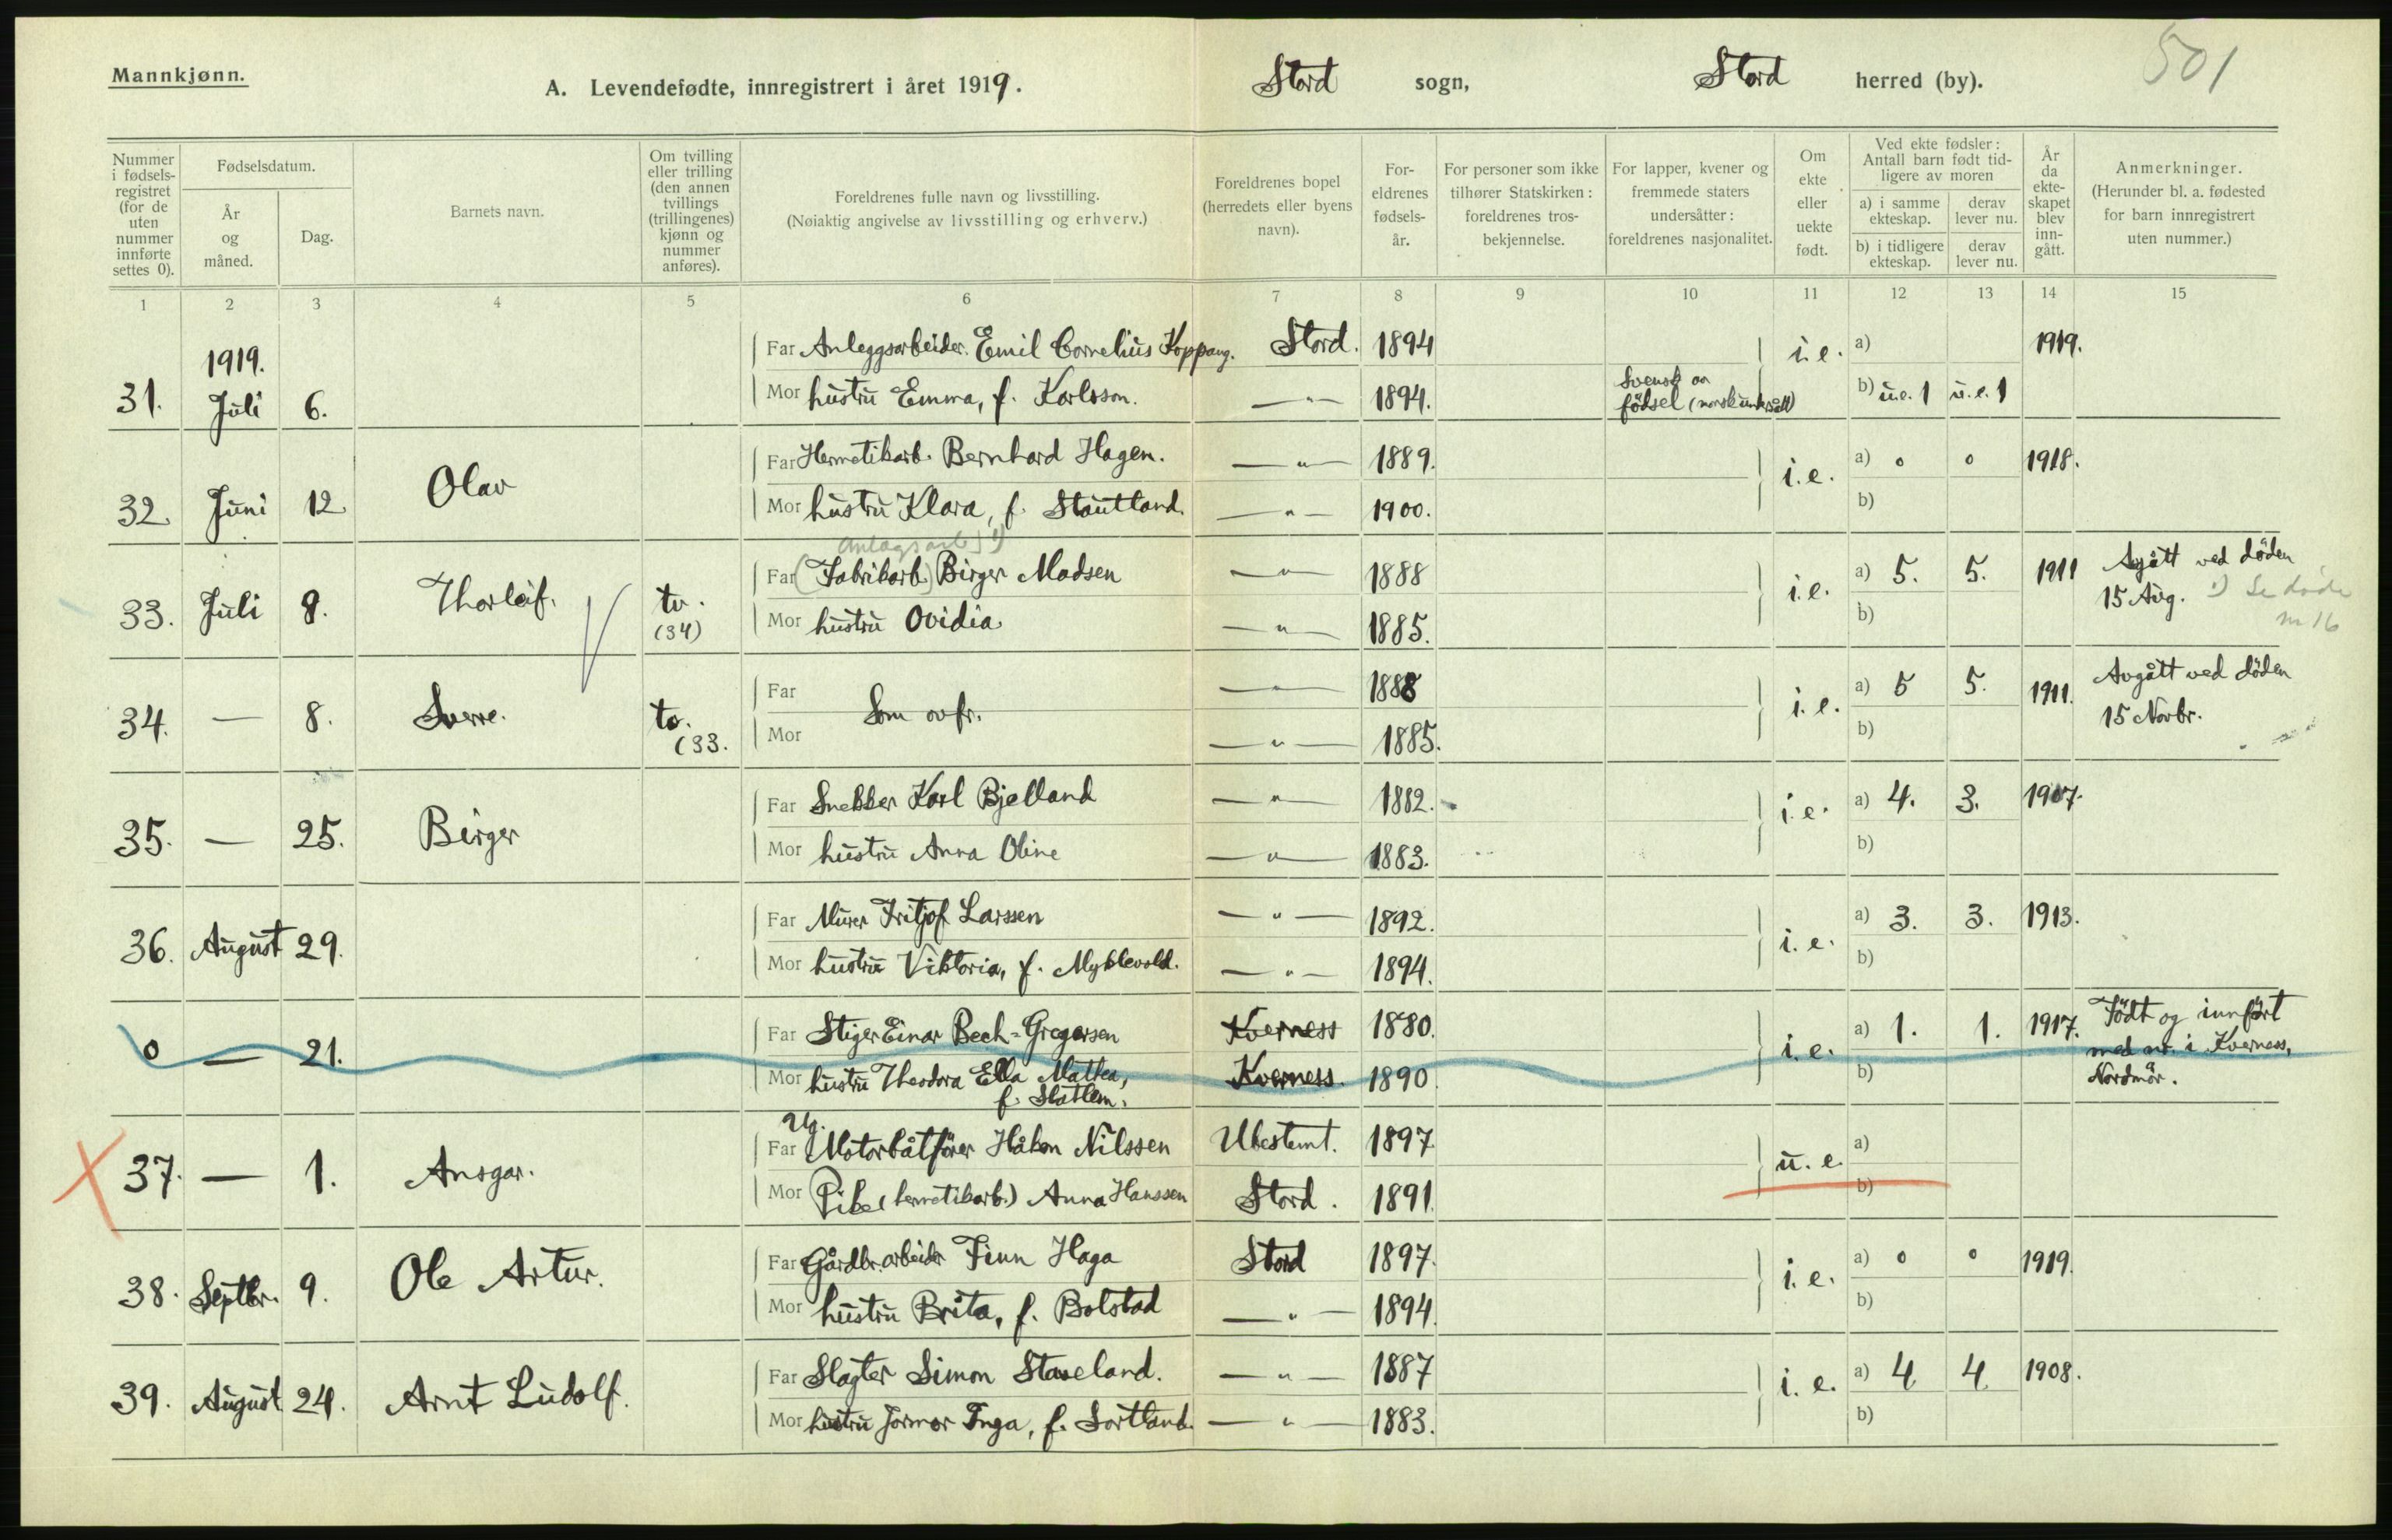 Mannkjønn.
A. Levendefødte, innregistrert i året 1919.
Stord sogn,
Stord herred (by).
501
Nummer i fødsels-registret (for de uten nummer innførte settes 0).
Fødselsdatum.
År og måned.
Dag.
Barnets navn.
Om tvilling eller trilling (den annen tvillings (trillingenes) kjønn og nummer anføres).
Foreldrenes fulle navn og livsstilling.
(Nøiaktig angivelse av livsstilling og erhverv.)
Foreldrenes bopel (herredets eller byens navn).
For-eldrenes fødsels-år.
For personer som ikke tilhører Statskirken: foreldrenes tros-bekjennelse.
For lapper, kvener og fremmede staters undersåtter: foreldrenes nasjonalitet.
Om ekte eller uekte født.
Ved ekte fødsler: Antall barn født tid-ligere av moren
a) i samme ekteskap.
derav lever nu.
b) i tidligere ekteskap.
derav lever nu.
År da ekte-skapet blev inn-gått.
Anmerkninger.
(Herunder bl. a. fødested for barn innregistrert uten nummer.)
1 2 3 4 5 6 7 8 9 10 11 12 13 14 15
31. 1919. Juli 6. Far Anleggsarbeider Emil Cornelius Koppang. Stord. 1894 i.e. a) 1919.
Mor hustru Emma, f. Karlsson. —"— 1894. Svensk av fødsel (norsk undersått) b) u.e. 1 u.e. 1
32. Juni 12. Olav Far Hermetikarb. Bernhard Hagen. —"— 1889. i.e. a) 0 0 1918.
Mor hustru Klara, f. Stautland. —"— 1900. b)
Anlagsarb. 1)
33. Juli 8. Thorleif. tv. (34) Far (Fabrikarb.) Birger Madsen —"— 1888 i.e. a) 5. 5. 1911 Avgått ved døden
Mor hustru Ovidia —"— 1885. b) 15 Aug. 1) Se døde nr 16
34. — 8. Sverre. tv. (33. Far Som ovfr. —"— 1888 i.e. a) 5 5. 1911. Avgått ved døden
Mor —"— 1885. b) 15 Novbr.
35. — 25. Birger Far Snekker Karl Bjelland —"— 1882. i.e. a) 4. 3. 1907.
Mor hustru Anna Oline —"— 1883. b)
36. August 29. Far Murer Fritjof Larssen —"— 1892. i.e. a) 3. 3. 1913.
Mor hustru Viktoria, f. Myklevold. —"— 1894. b)
0 — 21. Far Stiger Einar Bech-Gregersen Kverness 1880. i.e. a) 1. 1. 1917. Født og innført
Mor hustru Theodora Ella Mathea, Kverness. 1890. b) med nr. i Kverness,
f. Slatlem. Nordmør.
Ug.
37. — 1. Ansgar. Far Motorbåtfører Håkon Nilssen Ubestemt. 1897 u.e. a)
Mor Pike (hermetikarb.) Anna Hanssen Stord. 1891. b)
38. Septbr. 9. Ole Artur. Far Gårdbr.arbeider Finn Haga Stord 1897. i.e. a) 0 0 1919.
Mor hustru Brita, f. Bolstad —"— 1894. b)
39. August 24. Arnt Ludolf. Far Slagter Simon Staveland. —"— 1887 i.e. a) 4 4 1908.
Mor hustru Inga, f. Sortland. —"— 1883. b)